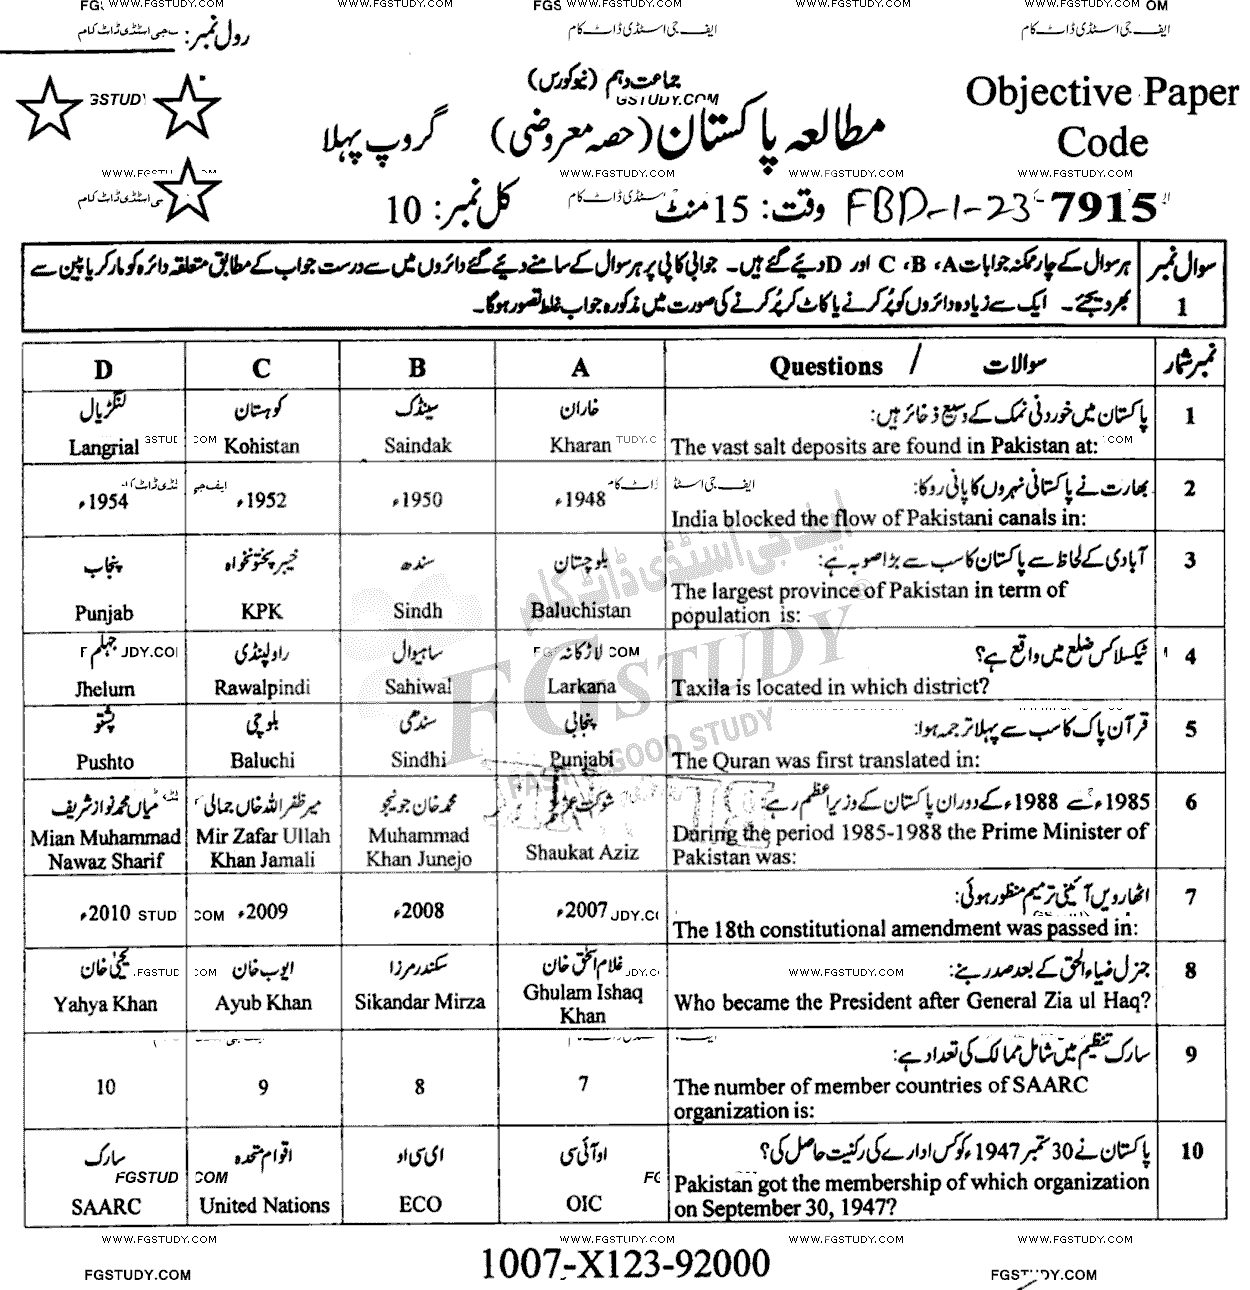 FG WWW.FGSTUDY.COM FGS WWW.FGSTUDY.COM WWW.FGSTUDY.COM OM
رول نمبر:
ایف جی اسٹڈی ڈاٹ کام
ایف جی اسٹڈی ڈاٹ کام
جماعت دہم (نیو کورس)
GSTUDY.COM
FGSTUDY
Objective Paper
Code
مطالعہ پاکستان (حصہ معروضی) گروپ پہلا
WWW.FGSTUDY.COM WWW.FGSTUDY.COM
7915 FBD-1-23 وقت: 15 منٹ کل نمبر: 10
ایف جی اسٹڈی ڈاٹ کام
سوال نمبر 1
ہر سوال کے چار ممکنہ جوابات A، B، C اور D دیئے گئے ہیں۔ جوابی کاپی پر ہر سوال کے سامنے دیئے گئے دائروں میں سے درست جواب کے مطابق متعلقہ دائرہ کو مارکر یا پین سے
بھر دیجئے۔ ایک سے زیادہ دائروں کو پُر کرنے یا کاٹ کر پُر کرنے کی صورت میں مذکورہ جواب غلط تصور ہوگا۔
نمبر شمار سوالات / Questions A B C D
1 پاکستان میں خوردنی نمک کے وسیع ذخائر ہیں: خاران سینڈک کوہستان لنگڑیال
The vast salt deposits are found in Pakistan at: Kharan Saindak Kohistan Langrial
2 بھارت نے پاکستانی نہروں کا پانی روکا: 1948ء 1950ء 1952ء 1954ء
India blocked the flow of Pakistani canals in:
3 آبادی کے لحاظ سے پاکستان کا سب سے بڑا صوبہ ہے: بلوچستان سندھ خیبر پختونخواہ پنجاب
The largest province of Pakistan in term of
population is: Baluchistan Sindh KPK Punjab
4 ٹیکسلا کس ضلع میں واقع ہے؟ لاڑکانہ ساہیوال راولپنڈی جہلم
Taxila is located in which district? Larkana Sahiwal Rawalpindi Jhelum
5 قرآن پاک کا سب سے پہلا ترجمہ ہوا: پنجابی سندھی بلوچی پشتو
The Quran was first translated in: Punjabi Sindhi Baluchi Pushto
6 1985ء سے 1988ء کے دوران پاکستان کے وزیراعظم رہے: شوکت عزیز محمد خان جونیجو میر ظفر اللہ خاں جمالی میاں محمد نواز شریف
During the period 1985-1988 the Prime Minister of
Pakistan was: Shaukat Aziz Muhammad Khan Junejo Mir Zafar Ullah Khan Jamali Mian Muhammad Nawaz Sharif
7 اٹھارویں آئینی ترمیم منظور ہوئی: 2007ء 2008ء 2009ء 2010ء
The 18th constitutional amendment was passed in:
8 جنرل ضیاء الحق کے بعد صدر بنے: غلام اسحٰق خان سکندر مرزا ایوب خان یحییٰ خان
Who became the President after General Zia ul Haq? Ghulam Ishaq Khan Sikandar Mirza Ayub Khan Yahya Khan
9 سارک تنظیم میں شامل ممالک کی تعداد ہے:
The number of member countries of SAARC
organization is: 7 8 9 10
10 پاکستان نے 30 ستمبر 1947ء کو کس ادارے کی رکنیت حاصل کی؟ او آئی سی ای سی او اقوام متحدہ سارک
Pakistan got the membership of which organization
on September 30, 1947? OIC ECO United Nations SAARC
ایف جی اسٹڈی ڈاٹ کام
FGSTUDY
FAST & GOOD STUDY
WWW.FGSTUDY.COM WWW.FGSTUDY.COM WWW.FGSTUDY.COM
FGSTUDY.COM 1007-X123-92000 FGSTUDY.COM